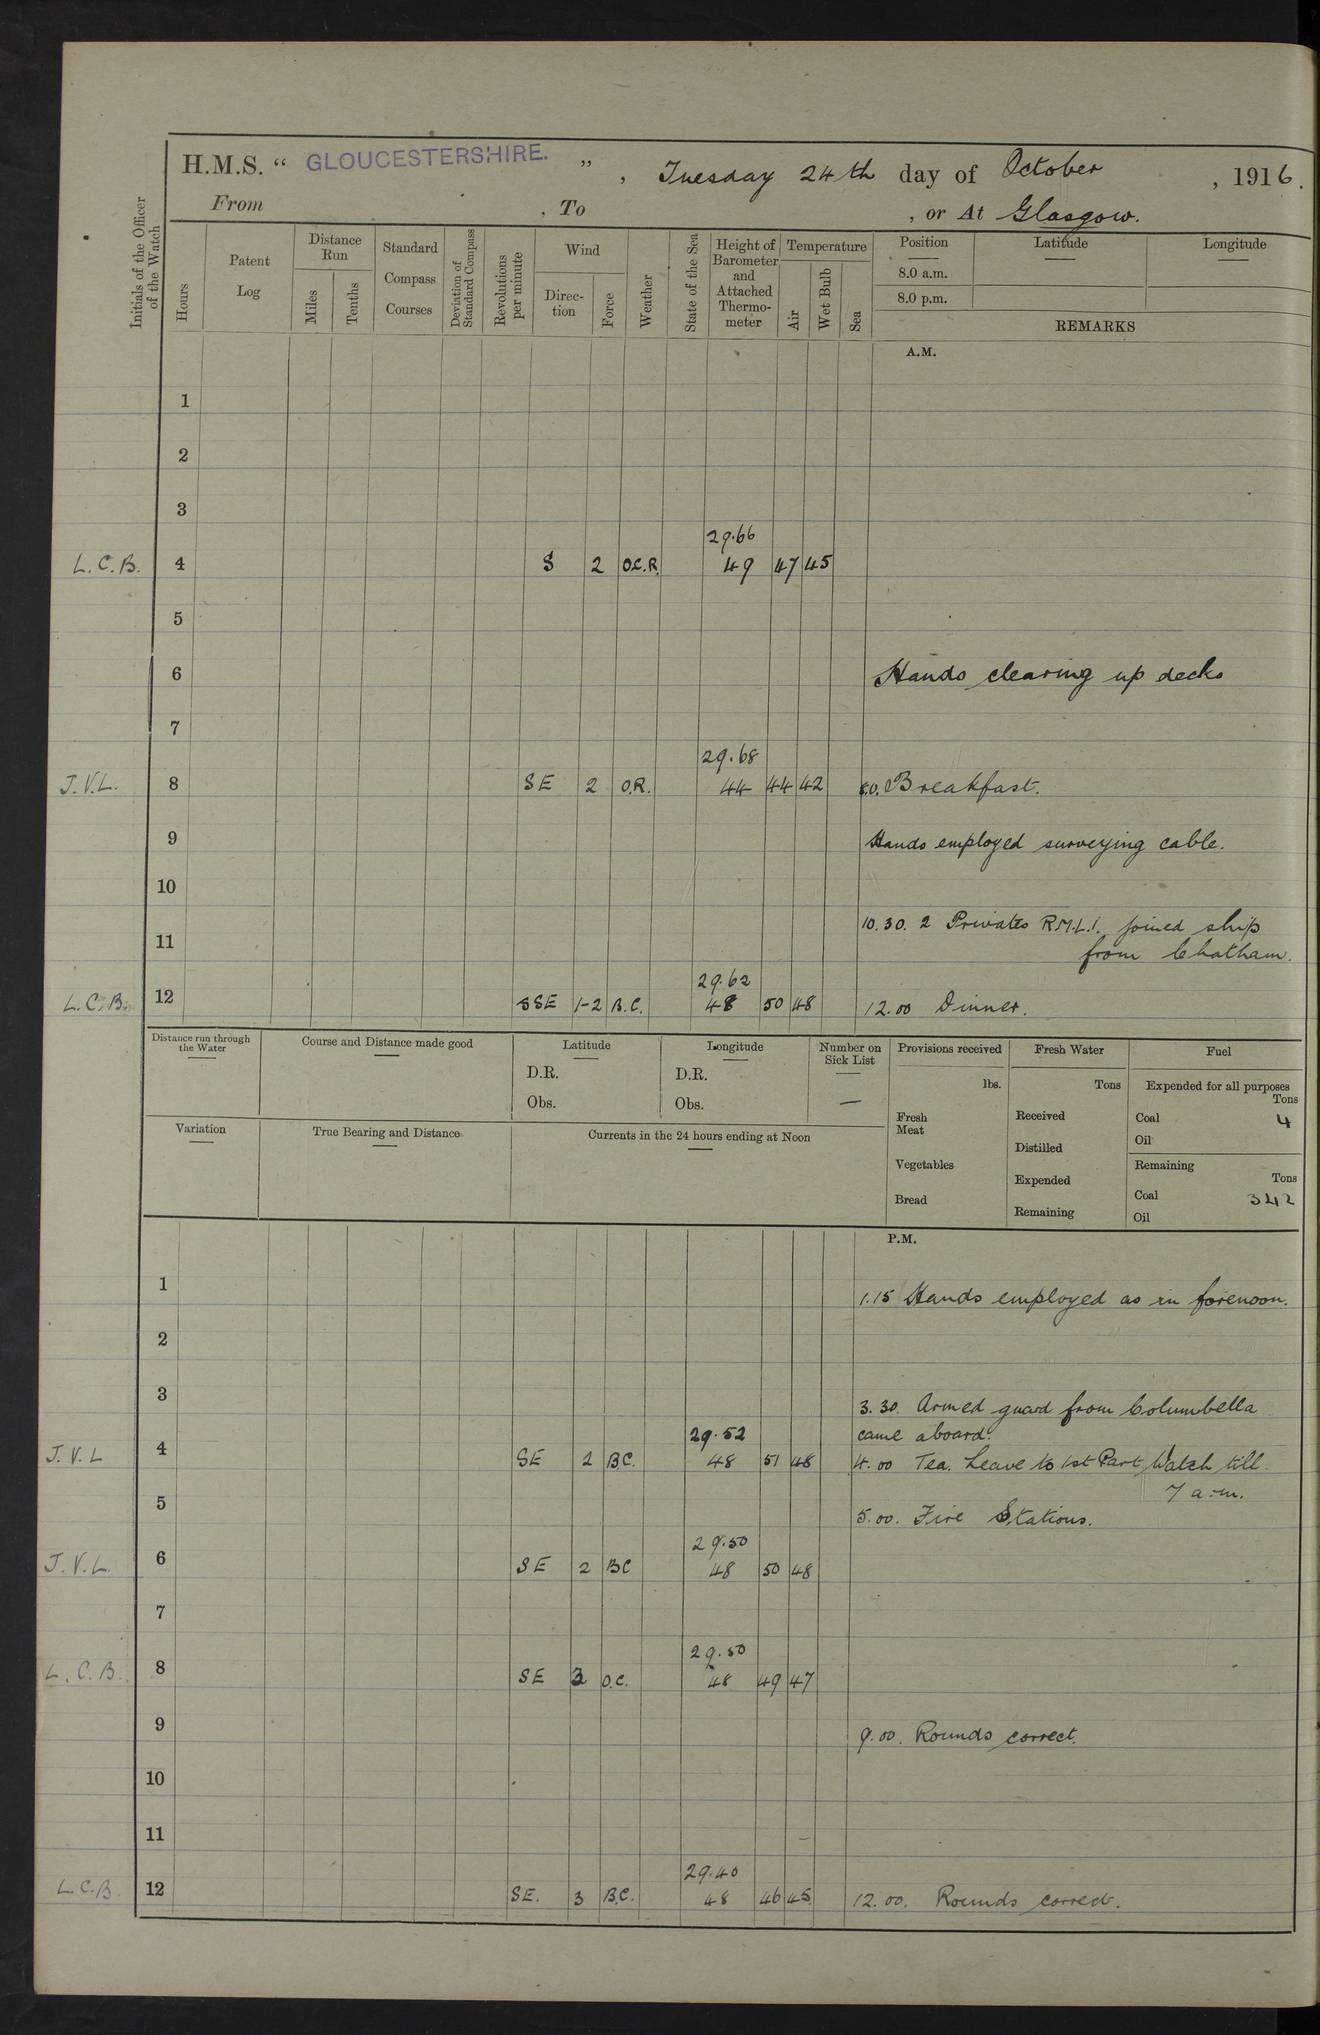 H.M.S. “ GLOUCESTERSHIRE. ” , Tuesday 24th day of October , 1916.
From , To , or At Glasgow.
Initials of the Officer of the Watch
Hours
Patent Log
Distance Run
Miles
Tenths
Standard Compass Courses
Deviation of Standard Compass
Revolutions per minute
Wind
Direc-tion
Force
Weather
State of the Sea
Height of Barometer and Attached Thermo-meter
Temperature
Air
Wet Bulb
Sea
Position Latitude Longitude
8.0 a.m.
8.0 p.m.
REMARKS
A.M.
1
2
3
29.66
L.C.B. 4 S 2 O.C.R. 49 47 45
5
6 Hands clearing up decks
7
29.68
J.V.L. 8 SE 2 O.R. 44 44 42 8.0. Breakfast.
9 Hands employed surveying cable.
10
10.30. 2 Privates R.M.L.I. joined ship
11 from Chatham.
29.62
L.C.B. 12 SSE 1-2 B.C. 48 50 48 12.00 Dinner.
Distance run through the Water
Course and Distance made good
Latitude
D.R.
Obs.
Longitude
D.R.
Obs.
Number on Sick List
—
Provisions received
lbs.
Fresh Meat
Vegetables
Bread
Fresh Water
Tons
Received
Distilled
Expended
Remaining
Fuel
Expended for all purposes
Tons
Coal 4
Oil
Remaining
Tons
Coal 342
Oil
Variation
True Bearing and Distance
Currents in the 24 hours ending at Noon
P.M.
1 1.15 Hands employed as in forenoon.
2
3 3.30. Armed guard from Columbella
29.52 came aboard.
J.V.L 4 SE 2 B.C. 48 51 48 4.00 Tea. Leave to 1st Part Watch till
7 a.m.
5 5.00. Fire Stations.
29.50
J.V.L. 6 SE 2 BC 48 50 48
7
29.50
L.C.B. 8 SE 3 O.C. 48 49 47
9 9.00. Rounds correct.
10
11
29.40
L.C.B. 12 SE. 3 B.C. 48 46 45 12.00. Rounds correct.